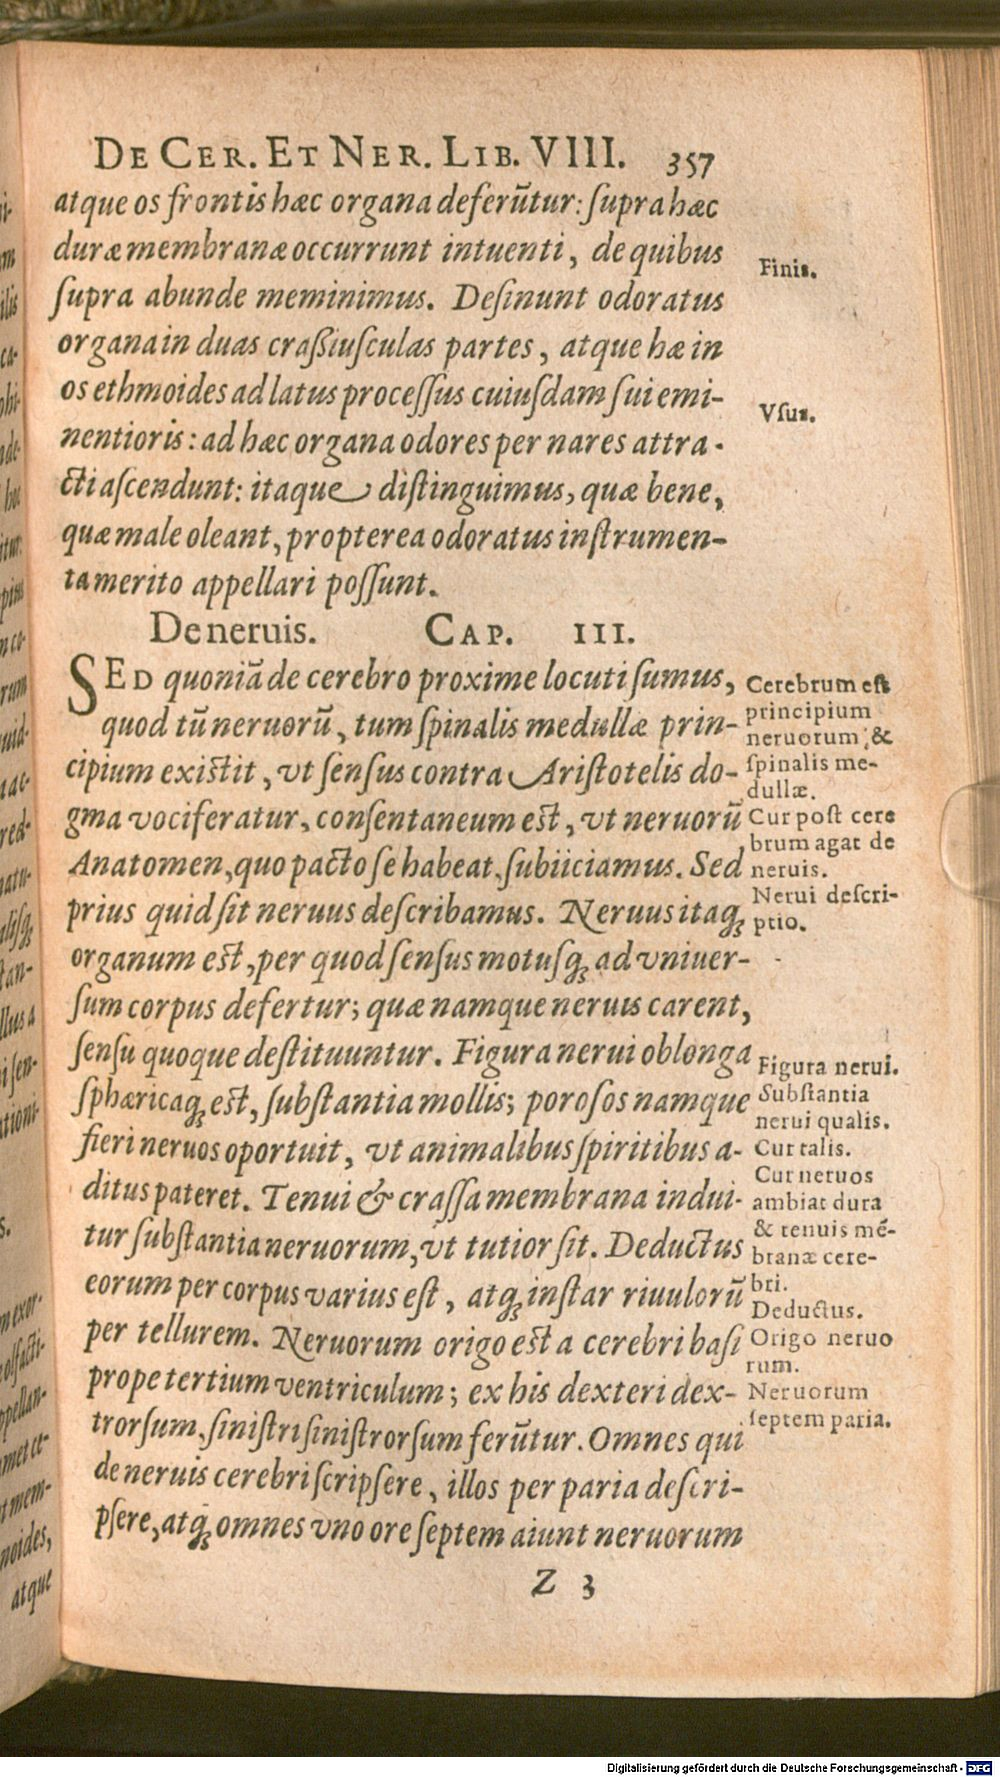 DE CER. ET NER. LIB. VIII. 357
atque os frontis hæc organa deferũtur: ſupra hæc
duræ membranæ occurrunt intuenti, de quibus
ſupra abunde meminimus. Deſinunt odoratus
organa in duas craßiuſculas partes, atque hæ in
os ethmoides ad latus proceſſus cuiuſdam ſui emi-
nentioris: ad hæc organa odores per nares attra-
cti aſcendunt: itaque diſtinguimus, quæ bene,
quæ male oleant, propterea odoratus inſtrumen-
ta merito appellari poſſunt.
Finis.
Vſus.
De neruis. CAP. III.
SED quoniã de cerebro proxime locuti ſumus,
quod tũ neruorũ, tum ſpinalis medullæ prin-
cipium exiſtit, vt ſenſus contra Ariſtotelis do-
gma vociferatur, conſentaneum eſt, vt neruorũ
Anatomen, quo pacto ſe habeat, ſubiiciamus. Sed
prius quid ſit neruus deſcribamus. Neruus itaq;
organum eſt, per quod ſenſus motuſq; ad vniuer-
ſum corpus defertur; quæ namque neruis carent,
ſenſu quoque deſtituuntur. Figura nerui oblonga
ſphæricaq; eſt, ſubſtantia mollis; poroſos namque
fieri neruos oportuit, vt animalibus ſpiritibus a-
ditus pateret. Tenui & craſſa membrana indui-
tur ſubſtantia neruorum, vt tutior ſit. Deductus
eorum per corpus varius eſt, atq; inſtar riuulorũ
per tellurem. Neruorum origo eſt a cerebri baſi
prope tertium ventriculum; ex his dexteri dex-
trorſum, ſiniſtri ſiniſtrorſum ferũtur. Omnes qui
de neruis cerebri ſcripſere, illos per paria deſcri-
pſere, atq; omnes vno ore ſeptem aiunt neruorum
Cerebrum eſt
principium
neruorum, &
ſpinalis me-
dullæ.
Cur poſt cere
brum agat de
neruis.
Nerui deſcri-
ptio.
Figura nerui.
Subſtantia
nerui qualis.
Cur talis.
Cur neruos
ambiat dura
& tenuis mẽ-
branæ cere-
bri.
Deductus.
Origo neruo
rum.
Neruorum
ſeptem paria.
Z 3
atque
Digitalisierung gefördert durch die Deutsche Forschungsgemeinschaft - DFG